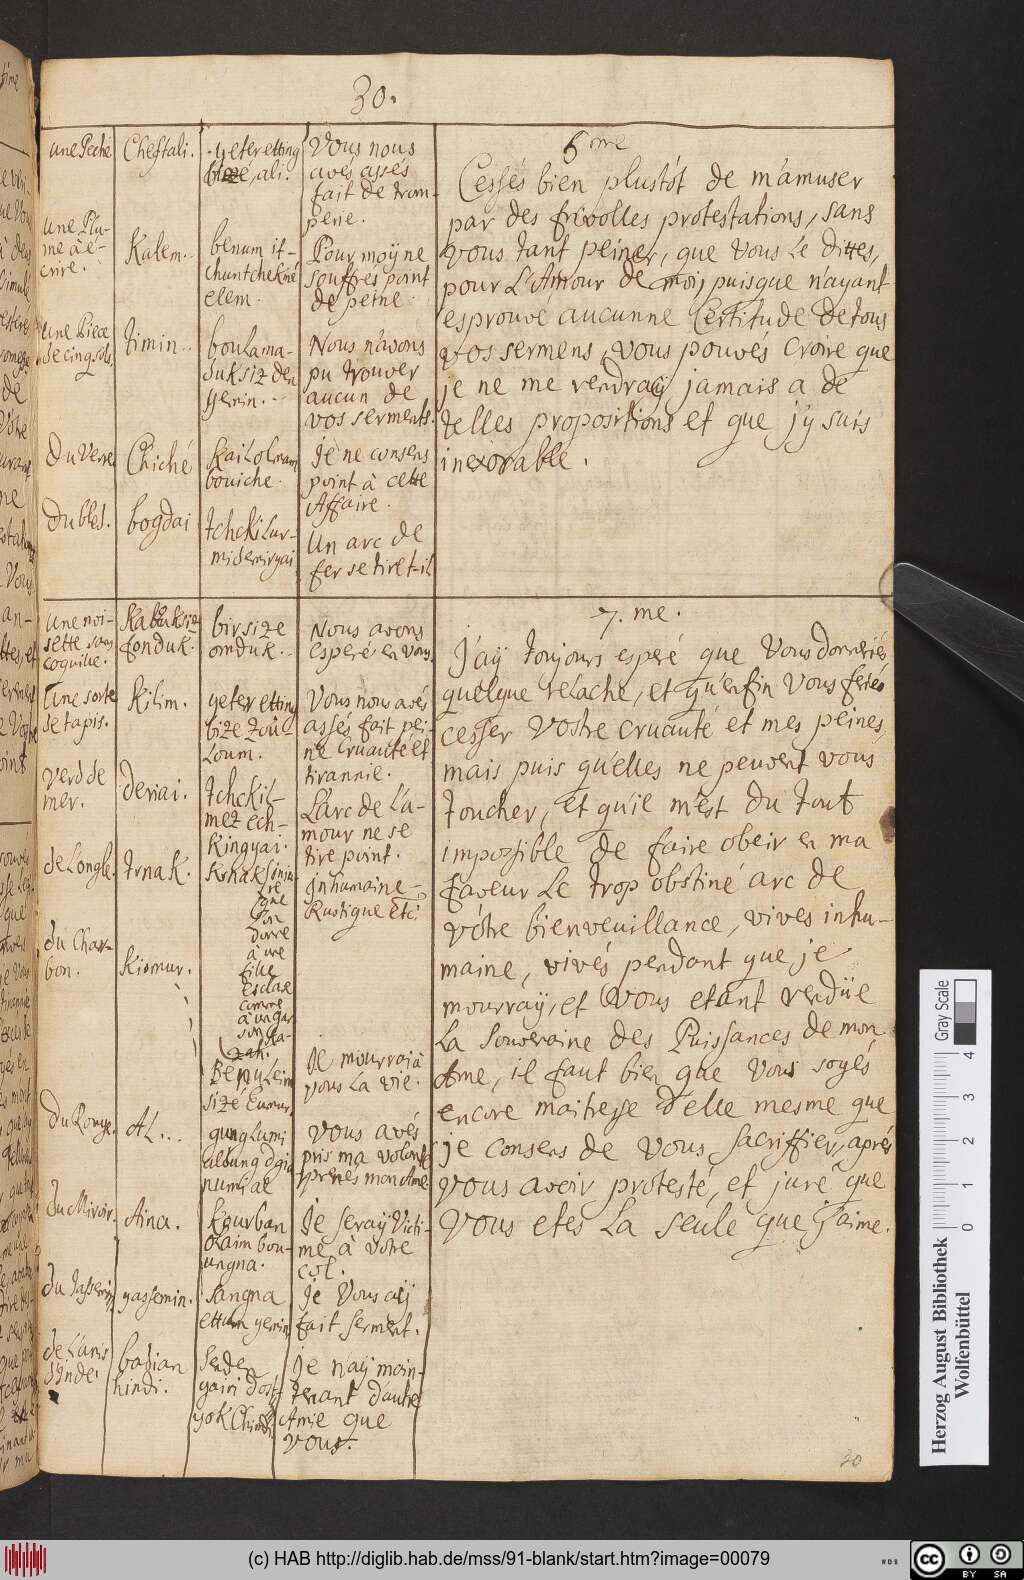 30.
une Peche
Cheftali.
yeter etting
bize, ali.
Vous nous
avés assés
fait de trom-
perie.
une Plu-
me à é-
crire.
Kalem.
benum it-
elem.
Pour moy ne
souffrés point
de peine.
une Piece
de cinq sols.
timin..
boulama-
duksiz den
yemin..
Nous n'avons
pu trouver
aucun de
vos serments.
du Verre
Chiché
kail olmam
bouiche.
Je ne consens
point à cette
Affaire.
du bled.
bogdai
tchekilur-
mi demir yai
Un arc de
fer se tire t-il
6.me
Cessés bien plustôt de m'amuser
par des frivolles protestations, sans
vous tant peiner, que vous le dittes,
pour L'Amour de moy, puisque n'ayant
esprouvé aucunne Certitude de tous
vos sermens, vous pouvés croire que
je ne me rendray jamais a de
telles propositions et que j'y suis
inexorable.
une noi-
sette sans
coquille.
Kabuksiz
fonduk.
bir size
omduk..
Nous avons
esperé en vous.
une sorte
de tapis.
Kilim.
yeter etting
bize zou-
loum.
Vous nous avés
assés fait pei-
ne Cruauté et
tirannie.
verd de
mer.
deriai.
tchekil-
mez ech-
king yai.
L'arc de L'a-
mour ne se
tire point.
de L'ongle.
trnak.
Inhumaine
Rustique etc:
que
donne
à une
fille
Esclave
comme
à un gar
son Ka-
zak.
du Char-
bon.
Kiomur.
size Eumur.
Je mourrai à
vous la vie.
du Rouge.
AL...
numi al
Vous avés
pris ma volonté
prenés mon Ame
du Miroir.
Aina.
kourban
olaim bou-
ungna.
Je seray Victi-
me à vôtre
col.
du Jassemin,
yassemin.
Sangna
ettum yemin
Je Vous aij
fait serment.
de L'anis
d'Jnde.
badian
hindi.
Senden
gairi dost
yok Chimdi
Je n'aij main-
tenant d'autre
Amie que
vous.
7.me.
J'aij toujours esperé que Vous donneriés
quelque relache, et qu'enfin Vous feriés
cesser vostre cruauté et mes peines,
mais puis qu'elles ne peuvent vous
toucher, et qu'il m'est du tout
impossible de faire obeir en ma
faveur Le trop obstiné arc de
vôtre bienveuillance, vivés inhu-
maine, vivés pendant que je
mourraij, et Vous etant rendüe
La Souveraine des Puissances de mon
Ame, il faut bien que Vous soyés
encore maitresse d'elle mesme que
je consens de vous sacriffier, aprés
vous avoir protesté, et juré que
Vous etes La seule que j'aime.
30
Herzog August Bibliothek
Wolfenbüttel
Gray Scale
0 1 2 3 4
(c) HAB http://diglib.hab.de/mss/91-blank/start.htm?image=00079
WDB
cc BY SA